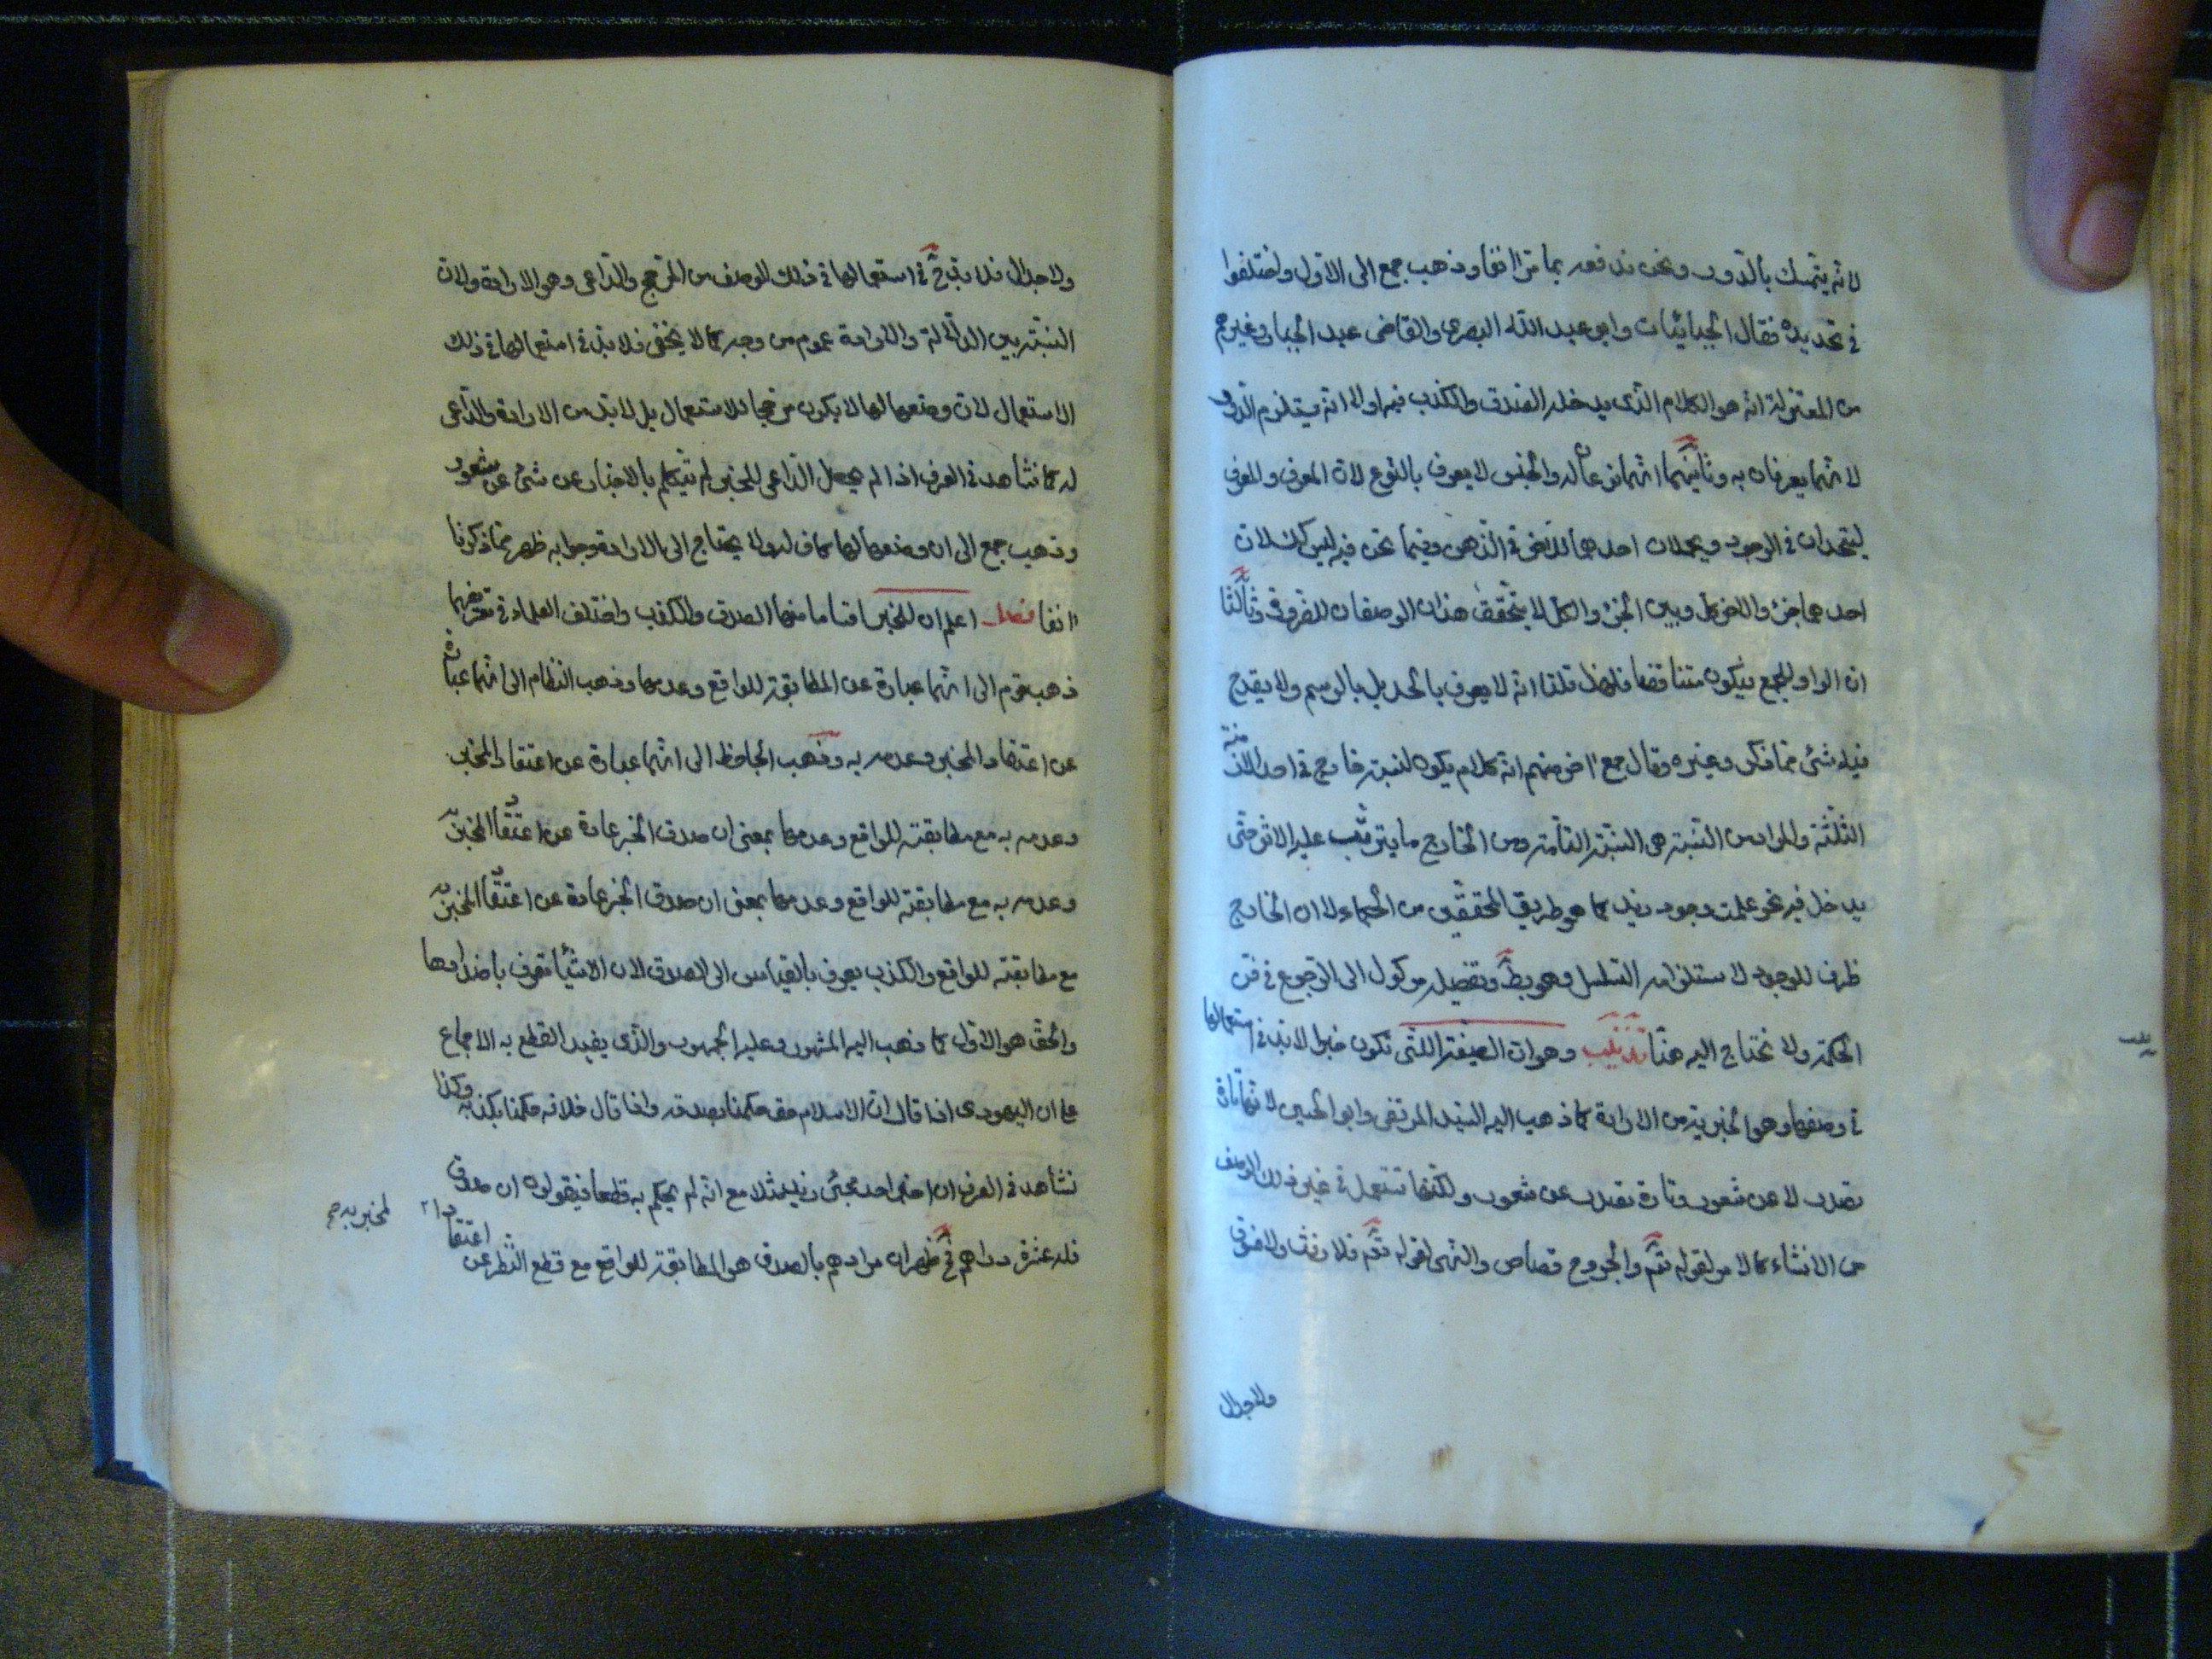 لانه يتمسك بالدور ونحن ندفعه بما مر انفا وذهب جمع الى الاول واختلفوا
في تحديده فقال الجبائيان وابو عبد الله البصرى والقاضى عبد الجبار وغيرهم
من المعتزلة انه هو الكلام الذى يدخله الصدق والكذب فيه اولا انه يستلزم الدور
لانهما يعرفان به وثانيهما انهما نوعان له والجنس لا يعرف بالنوع لان المعرف والمعرف
ليتحدان في الوجود ويحملان احدهما للاخر في الذهن وفيما نحن فيه ليس كك لان
احدهما جزء والاخر كل وبين الجزء والكل لا يتحقق هذان الوصفان للفروق وثالثا
ان الواو للجمع فيكون متناقضا فلهذا قلنا انه لا يعرف بالحد بل بالرسم ولا يقدح
فيه شئ مما ذكر وغيره وقال جمع اخر منهم انه كلام يكون لنسبته خارج في احد الازمنة
الثلثة والمراد من النسبة هى النسبة التامة ومن الخارج ما يترتب عليه الاثر حتى
يدخل فيه نحو علمت وجود زيد كما هو طريق المحققين من الحكماء لا ان الخارج
ظرف للوجود لاستلزامه التسلسل وهو بط وتفصيله موكول الى الرجوع في فن
الحكمة ولا نحتاج اليه هنا تذنيب وهو ان الصيغة اللتى تكون خبرا لابد في استعمالها
في وصفها وهو الخبرية من الارادة كما ذهب اليه السيد المرتضى وابو الحسين لانها تارة
تصدر لا عن شعور وتارة تصدر عن شعور ولكنها تستعمل في غير ذلك الوصف
من الانشاء كالامر لقوله تعم والجروح قصاص والنهى لقوله تعم فلا رفث ولا فسوق
ولا جدال
ولا جدال فلابد ح في استعمالها في ذلك الوصف من المرجح والداعى وهو الارادة ولان
النسبة بين الدلالة والارادة عموم من وجه كما لا يخفى فلابد في استعمالها في ذلك
الاستعمال لان وضعها لها لا يكون مرجحا للاستعمال بل لابد من الارادة والداعى
له كما نشاهد في العرف اذا لم يحصل الداعى للمخبر لم يتكلم بالاخبار عن شئ عن شعور
وذهب جمع الى ان وضعها لها كاف له ولا يحتاج الى الارادة وجوابه ظهر مما ذكرنا
انفا فصل اعلم ان للخبر اقساما منها الصدق والكذب واختلف العلماء في تعريفهما
ذهب قوم الى انهما عبارة عن المطابقة للواقع وعدمها وذهب النظام الى انهما عبارة
عن اعتقاد المخبر وعدمه به وذهب الجاحظ الى انهما عبارة عن اعتقاد المخبر
وعدمه به مع مطابقته للواقع وعدمها بمعنى ان صدق الخبر عبارة عن اعتقاد المخبر به
وعدمه به مع مطابقته للواقع وعدمها بمعنى ان صدق الخبر عبارة عن اعتقاد المخبر به
مع مطابقته للواقع والكذب يعرف بالقياس الى الصدق لان الاشياء تعرف باضدادها
والحق هو الاول كما ذهب اليه المشهور وعليه الجمهور والذى يفيد القطع به الاجماع
على ان اليهودى اذا قال ان الاسلام حق حكمنا بصدقه واذا قال خلافه حكمنا بكذبه وكذا
نشاهد في العرف ان اخبر احد بمجئ زيد مثلا مع انه لم يحكم به قطعا فيقولون ان صدق
فله عشرة دراهم فح ظهر ان مرادهم بالصدق هو المطابقة للواقع مع قطع النظر عن اعتقاد
المخبر به صح